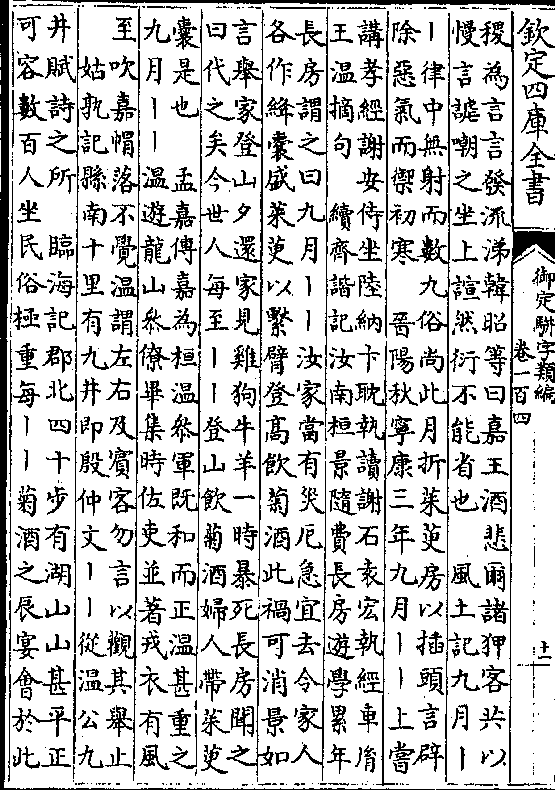 欽定四庫全書
御定駢字類編
卷一百四
十一
稷為言言發流涕韓昭等曰嘉王酒悲爾諸狎客共以
慢言謔嘲之坐上諠然衍不能省也　風土記九月丨
丨律中無射而數九俗尚此月折茱萸房以插頭言辟
除惡氣而禦初寒　晉陽秋寧康三年九月丨丨上嘗
講孝經謝安侍坐陸納卞耽執讀謝石袁宏執經車胤
王溫摘句　續齊諧記汝南桓景隨費長房遊學累年
長房謂之曰九月丨丨汝家當有災厄急宜去令家人
各作絳囊盛茱萸以繫臂登高飲菊酒此禍可消景如
言舉家登山夕還家見雞狗牛羊一時暴死長房聞之
曰代之矣今世人每至丨丨登山飲菊酒婦人帶茱萸
囊是也　孟嘉傳嘉為桓溫叅軍既和而正溫甚重之
九月丨丨溫遊龍山叅僚畢集時佐吏並著戎衣有風
至吹嘉帽落不覺溫謂左右及賓客勿言以觀其舉止
姑孰記縣南十里有九井即殷仲文丨丨從溫公九
井賦詩之所　臨海記郡北四十步有湖山山甚平正
可容數百人坐民俗極重每丨丨菊酒之辰宴會於此